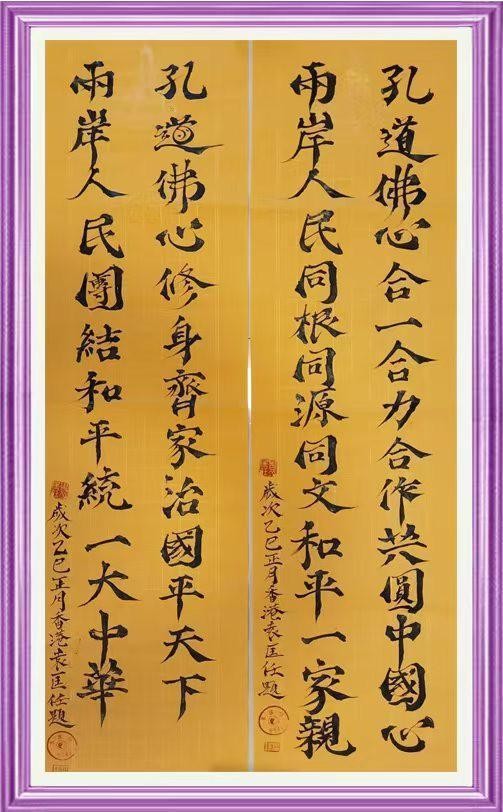 孔道佛心合一合力合作共圓中國心
兩岸人民同根同源同文和平一家親
歲次乙巳正月香港袁匡任題
孔道佛心修身齊家治國平天下
兩岸人民團結和平統一大中華
歲次乙巳正月香港袁匡任題